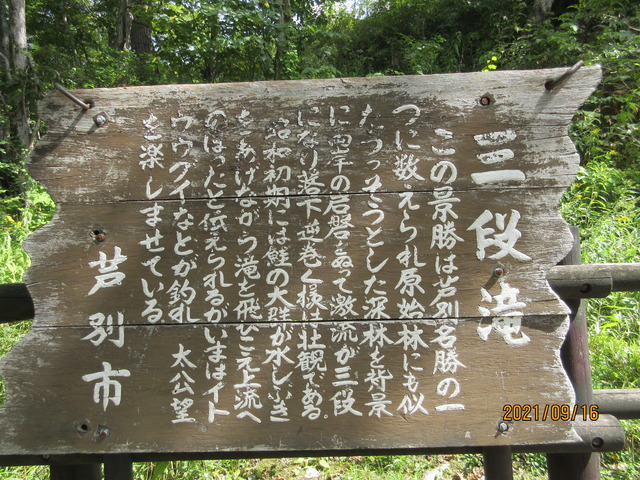 三段滝
この景勝は芦別名勝の一
つに数えられ原始林にも似
たうっそうとした深林を背景
に 岩磐に添って激流が三段
になり落下逆巻く様は壮観である
昭和初期には鮭の大群が水しぶき
をあげながら滝を飛びこえ上流へ
のぼったと伝えられるがいまはイト
ウウグイなどが釣れ 太公望
を楽しませている
芦別市
2021/09/16